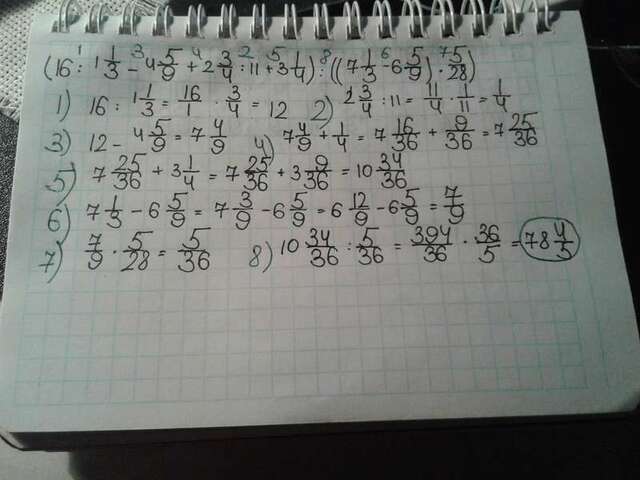 (16 : 1 1/3 - 4 5/9 + 2 3/4 : 11 + 3 1/4) : ((7 1/3 - 6 5/9) · 5/28)
1) 16 : 1 1/3 = 16/1 · 3/4 = 12 2) 2 3/4 : 11 = 11/4 · 1/11 = 1/4
3) 12 - 4 5/9 = 7 4/9 4) 7 4/9 + 1/4 = 7 16/36 + 9/36 = 7 25/36
5) 7 25/36 + 3 1/4 = 7 25/36 + 3 9/36 = 10 34/36
6) 7 1/3 - 6 5/9 = 7 3/9 - 6 5/9 = 6 12/9 - 6 5/9 = 7/9
7) 7/9 · 5/28 = 5/36 8) 10 34/36 : 5/36 = 394/36 · 36/5 = 78 4/5